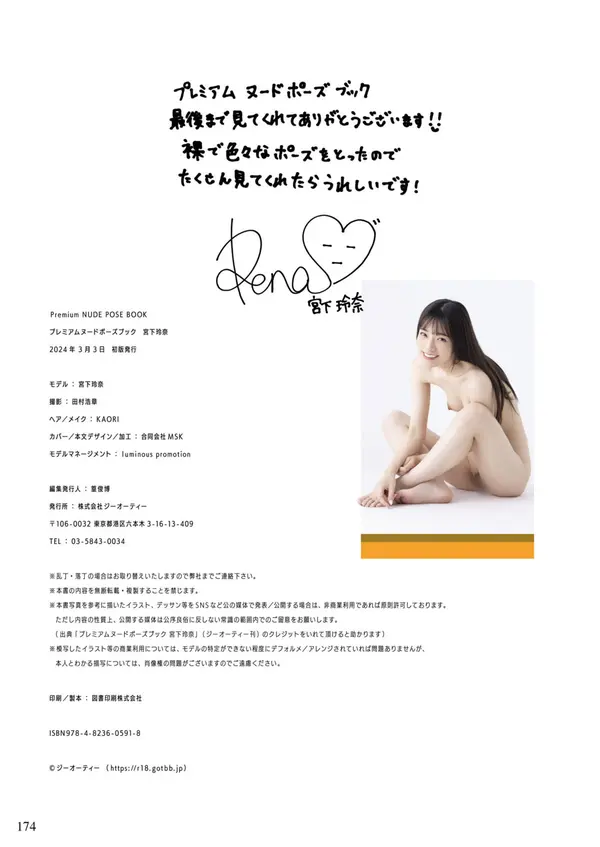 プレミアム ヌードポーズ ブック
最後まで見てくれてありがとうございます!!
裸で色々なポーズをとったので
たくさん見てくれたらうれしいです!
Rena
宮下 玲奈
Premium NUDE POSE BOOK
プレミアムヌードポーズブック 宮下玲奈
2024年3月3日 初版発行
モデル:宮下玲奈
撮影:田村浩章
ヘア/メイク:KAORI
カバー/本文デザイン/加工:合同会社MSK
モデルマネージメント:luminous promotion
編集発行人:篁俊博
発行所:株式会社ジーオーティー
〒106-0032 東京都港区六本木3-16-13-409
TEL:03-5843-0034
※乱丁・落丁の場合はお取り替えいたしますので弊社までご連絡下さい。
※本書の内容を無断転載・複製することを禁じます。
※本書写真を参考に描いたイラスト、デッサン等をSNSなど公の媒体で発表/公開する場合は、非商業利用であれば原則許可しております。
ただし内容の性質上、公開する媒体は公序良俗に反しない常識の範囲内でのご留意をお願いします。
(出典「プレミアムヌードポーズブック 宮下玲奈」(ジーオーティー刊)のクレジットをいれて頂けると助かります)
※模写したイラスト等の商業利用については、モデルの特定ができない程度にデフォルメ/アレンジされていれば問題ありませんが、
本人とわかる描写については、肖像権の問題がございますのでご遠慮ください。
印刷/製本:図書印刷株式会社
ISBN978-4-8236-0591-8
©ジーオーティー (https://r18.gotbb.jp)
174